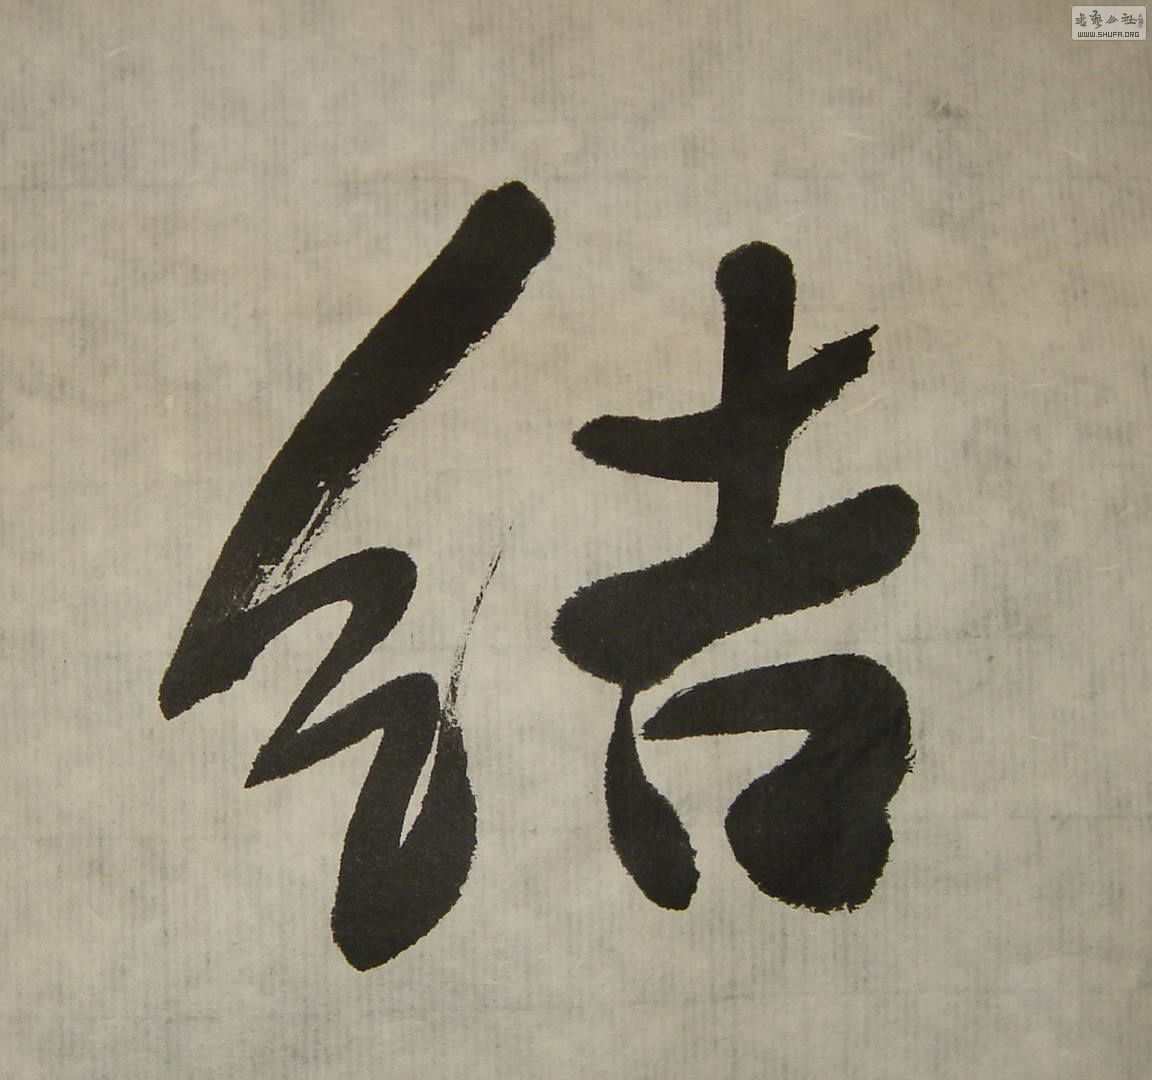 書藝公社
WWW.SHUFA.ORG
結